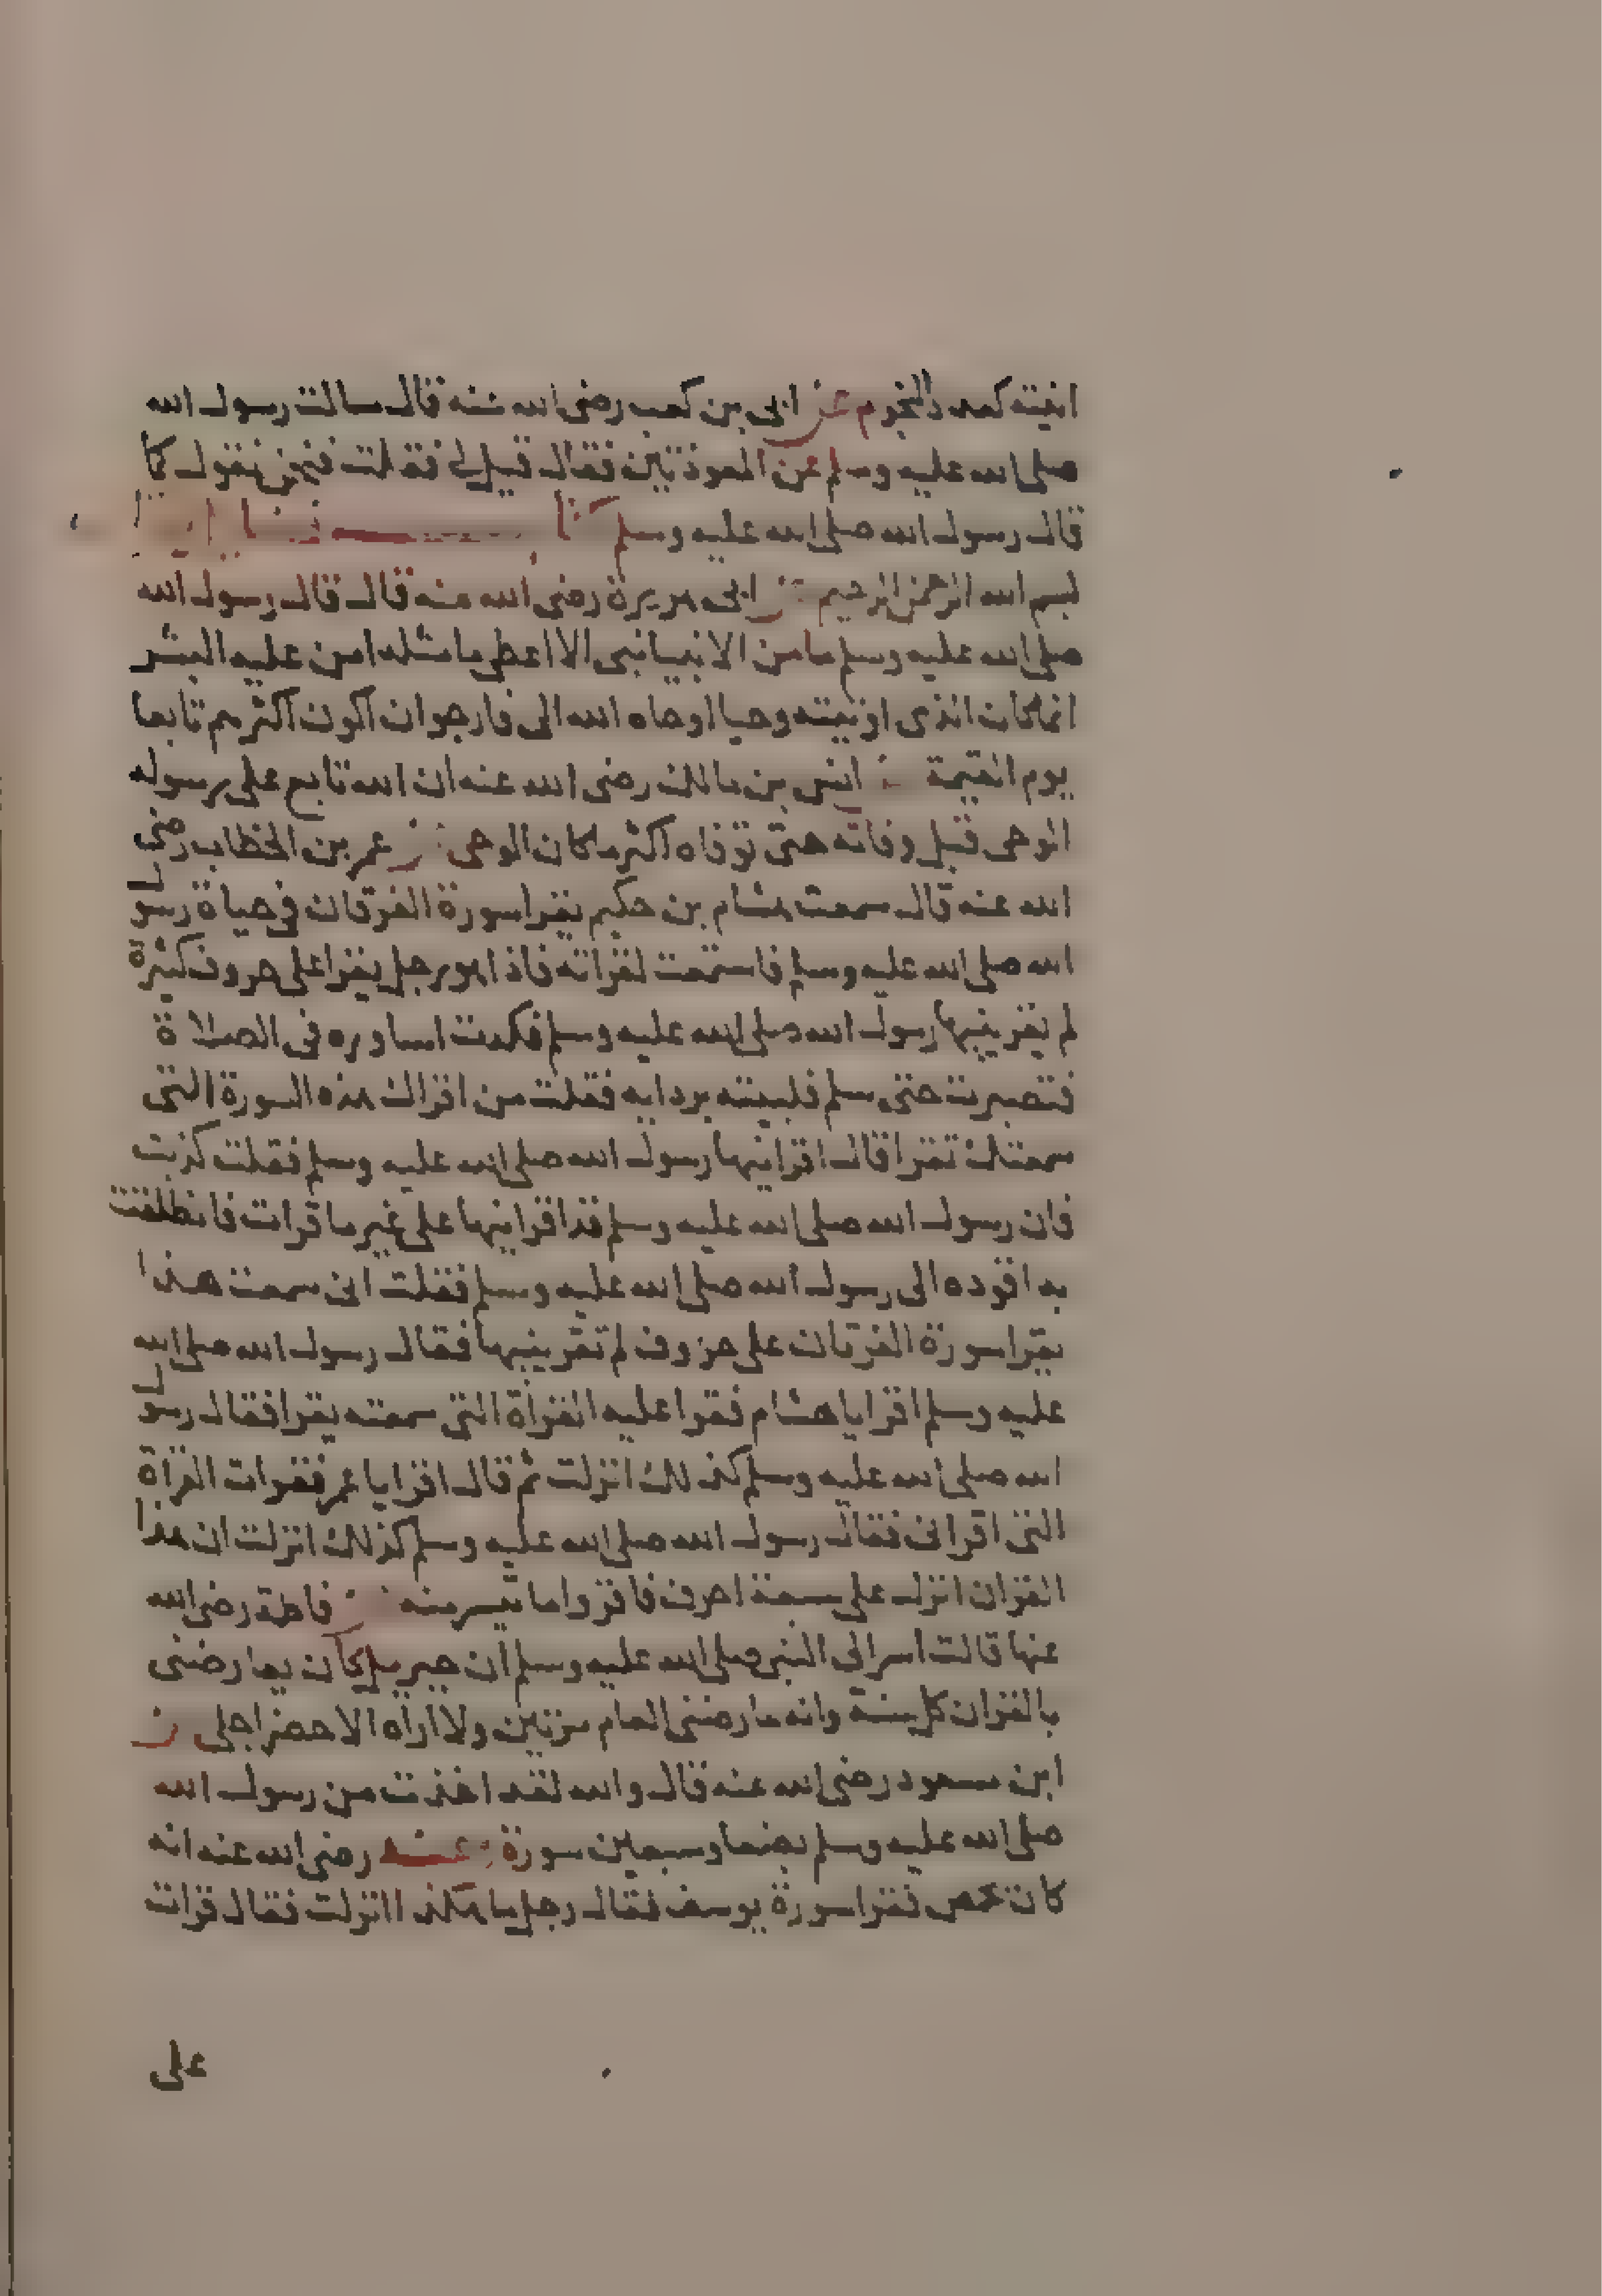 انيته كعدد النجوم عن ابى بن كعب رضى الله عنه قال سالت رسول الله
صلى الله عليه وسلم عن المعوذتين فقال قيل لى فقلت فنحن نقول كما
قال رسول الله صلى الله عليه وسلم كتاب
بسم الله الرحمن الرحيم عن ابى هريرة رضى الله عنه قال قال رسول الله
صلى الله عليه وسلم ما من الانبيا نبى الا اعطى ما مثله امن عليه البشر
انما كان الذى اوتيته وحيا اوحاه الله الى فارجو ان اكون اكثرهم تابعا
يوم القيمة عن انس بن مالك رضى الله عنه ان الله تابع على رسوله
الوحى قبل وفاته حتى توفاه اكثر ما كان الوحى عن عمر بن الخطاب رضى
الله عنه قال سمعت هشام بن حكيم يقرا سورة الفرقان فى حياة رسول
الله صلى الله عليه وسلم فاستمعت لقراته فاذا هو رجل يقرا على حروف كثيرة
لم يقرينيها رسول الله صلى الله عليه وسلم فكدت اساوره فى الصلاة
فتصبرت حتى سلم فلببته بردايه فقلت من اقراك هذه السورة التى
سمعتك تقرا قال اقرانيها رسول الله صلى الله عليه وسلم فقلت كذبت
فان رسول الله صلى الله عليه وسلم قد اقرانيها على غير ما قرات فانطلقت
به اقوده الى رسول الله صلى الله عليه وسلم فقلت انى سمعت هذا
يقرا سورة الفرقان على حروف لم تقرينيها فقال رسول الله صلى الله
عليه وسلم اقرا يا هشام فقرا عليه القراة التى سمعته يقرا فقال رسول
الله صلى الله عليه وسلم كذلك انزلت ثم قال اقرا يا عمر فقرات القراة
التى اقرانى فقال رسول الله صلى الله عليه وسلم كذلك انزلت ان هذا
القران انزل على سبعة احرف فاقروا ما تيسر منه عن فاطمة رضى الله
عنها قالت اسر الى النبى صلى الله عليه وسلم ان جبريل كان يعارضنى
بالقران كل سنة وانه عارضنى العام مرتين ولا اراه الا حضر اجلى عن
ابن مسعود رضى الله عنه قال والله لقد اخذت من رسول الله
صلى الله عليه وسلم بضعا وسبعين سورة وعنه رضى الله عنه انه
كان بحمص فقرا سورة يوسف فقال رجل ما هكذا انزلت فقال قرات
على